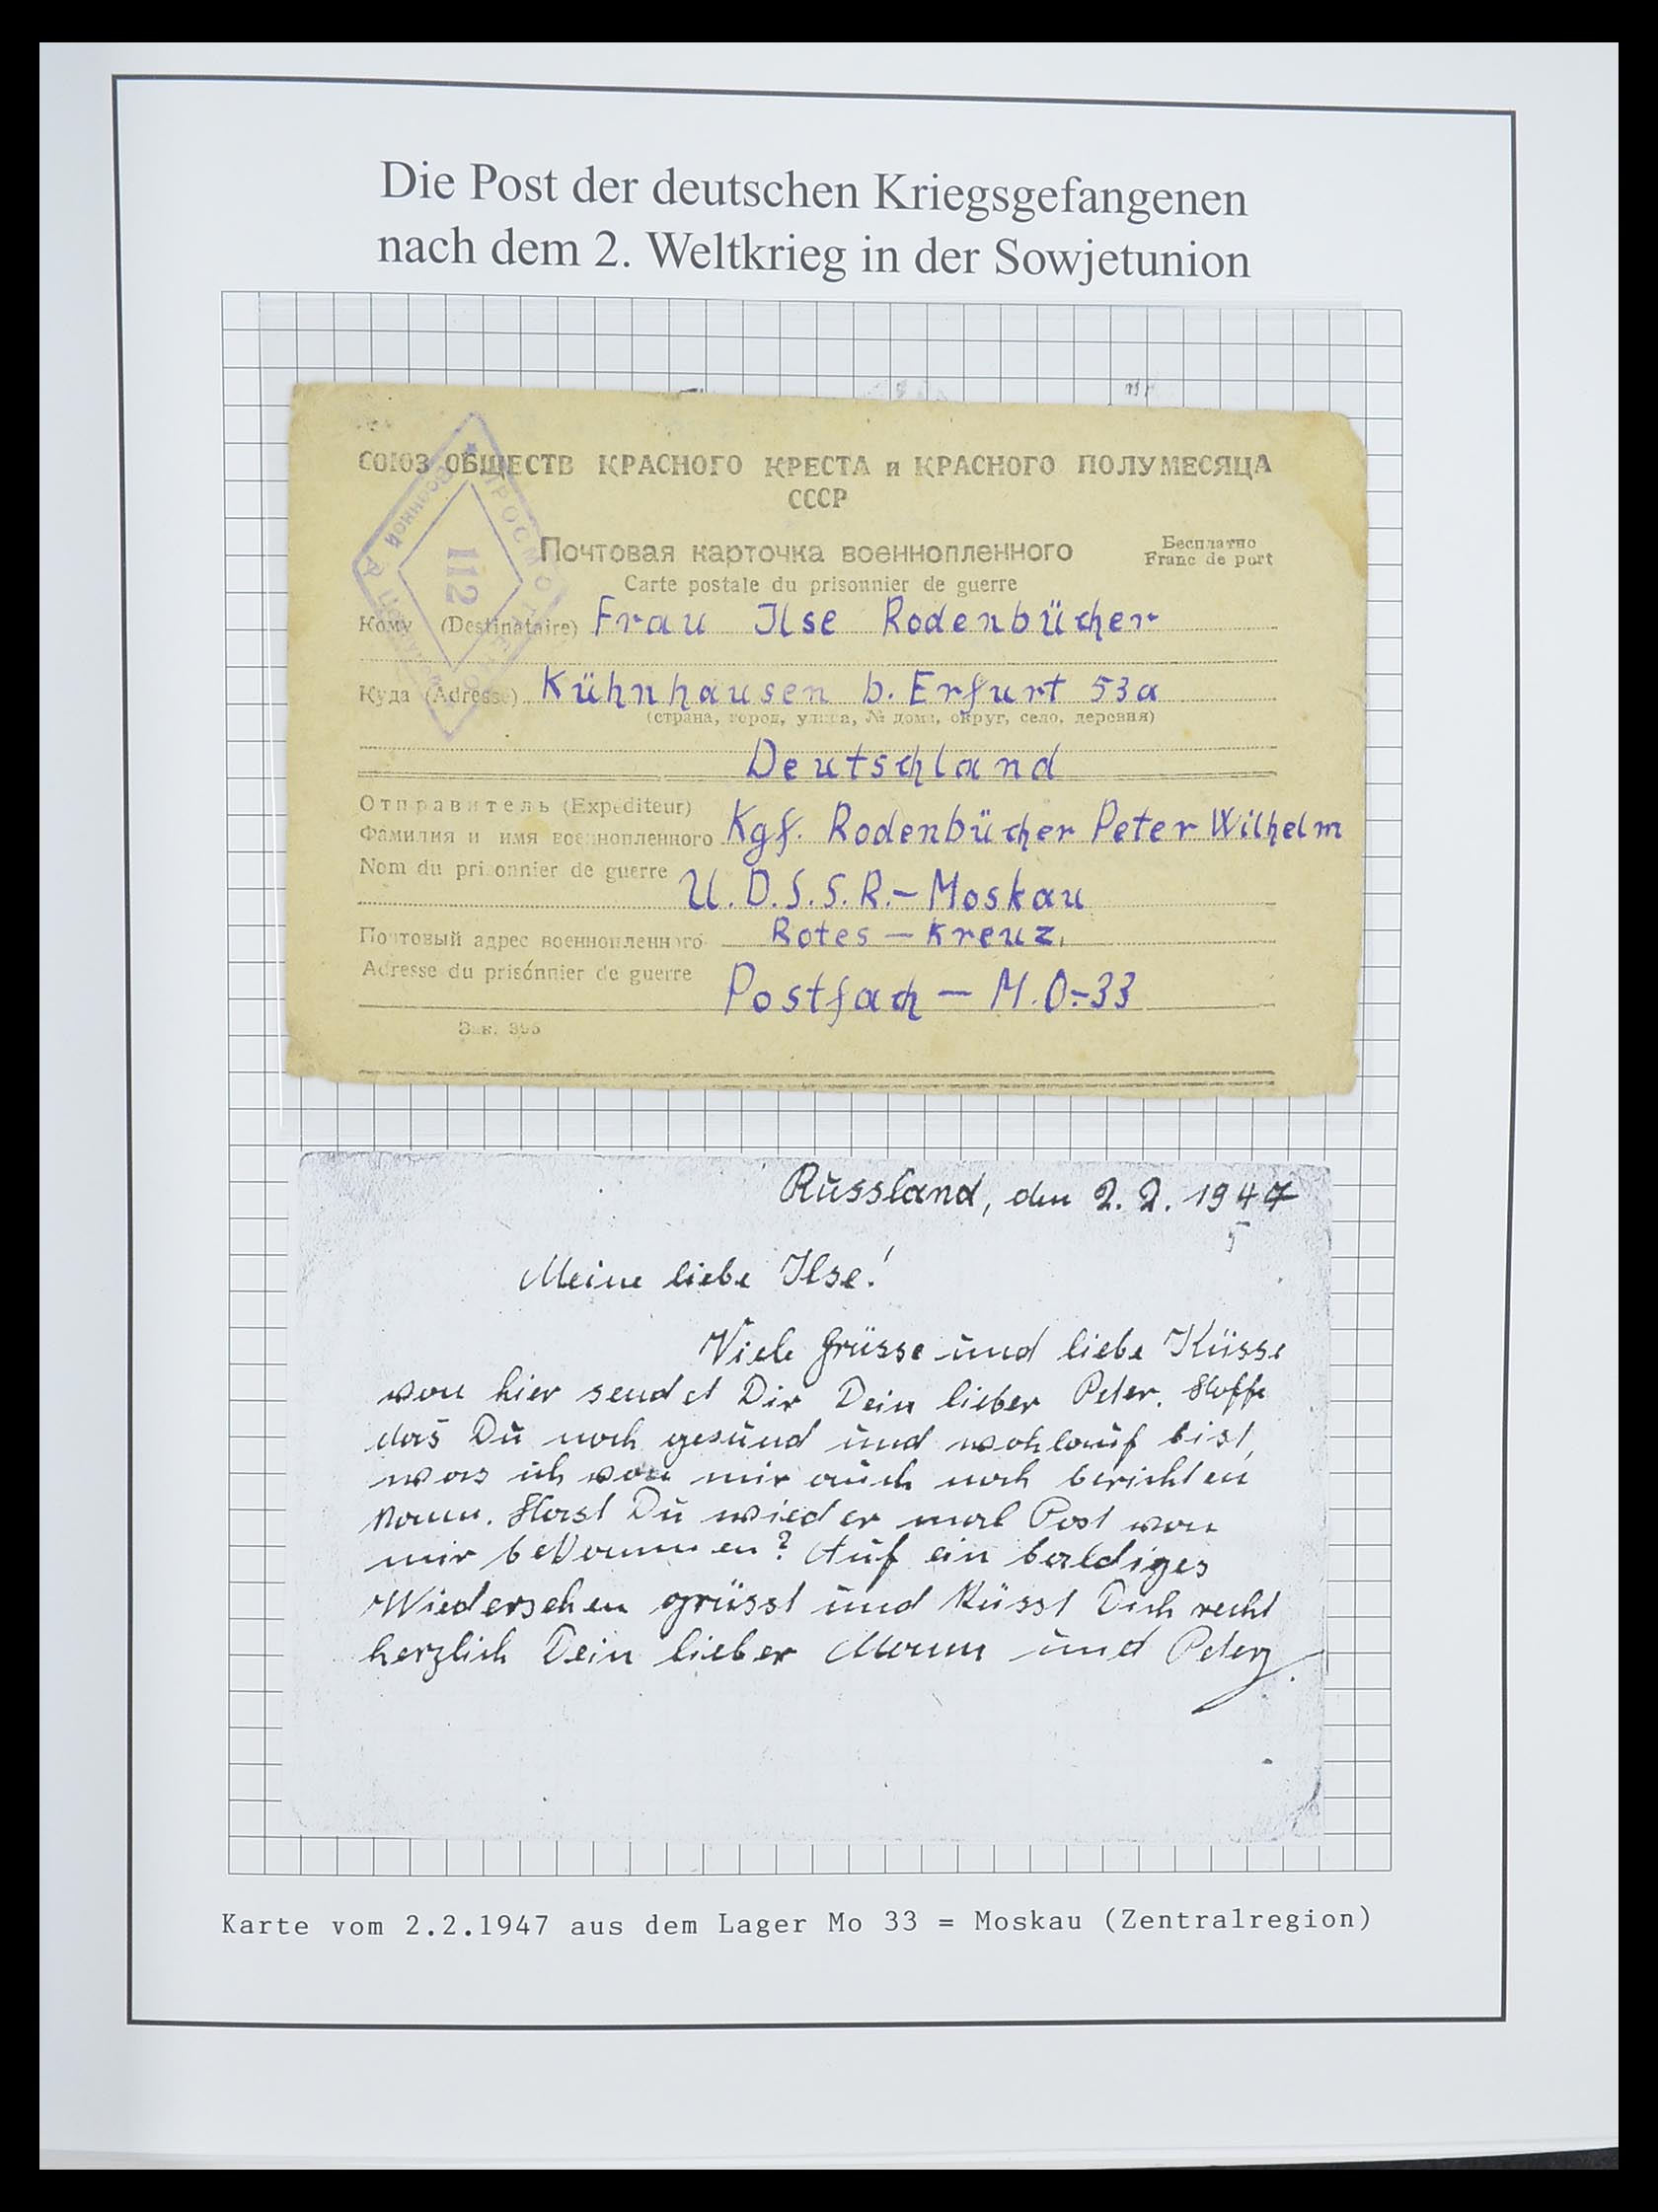 Die Post der deutschen Kriegsgefangenen
nach dem 2. Weltkrieg in der Sowjetunion
СОЮЗ ОБЩЕСТВ КРАСНОГО КРЕСТА и КРАСНОГО ПОЛУМЕСЯЦА
СССР
Почтовая карточка военнопленного
Бесплатно
Franc de port
Carte postale du prisonnier de guerre
112
Кому (Destinataire) Frau Ilse Rodenbücher
Куда (Adresse) Kühnhausen b. Erfurt 53a
(страна, город, улица, № дома, округ, село, деревня)
Deutschland
Отправитель (Expéditeur)
Фамилия и имя военнопленного Kgf. Rodenbücher Peter Wilhelm
Nom du prisonnier de guerre
U.D.S.S.R.-Moskau
Почтовый адрес военнопленного Rotes-Kreuz.
Adresse du prisónnier de guerre
Postfach - M.O.-33
Зак. 395
Russland, den 2.2.1947
Meine liebe Ilse!
Viele Grüsse und liebe Küsse
von hier sendet Dir Dein lieber Peter. Hoffe
das Du noch gesund und wohlauf bist,
was ich von mir auch noch berichten
kann. Hast Du wieder mal Post von
mir bekommen? Auf ein baldiges
Wiedersehen grüsst und küsst Dich recht
herzlich Dein lieber Mann und Peter.
Karte vom 2.2.1947 aus dem Lager Mo 33 = Moskau (Zentralregion)